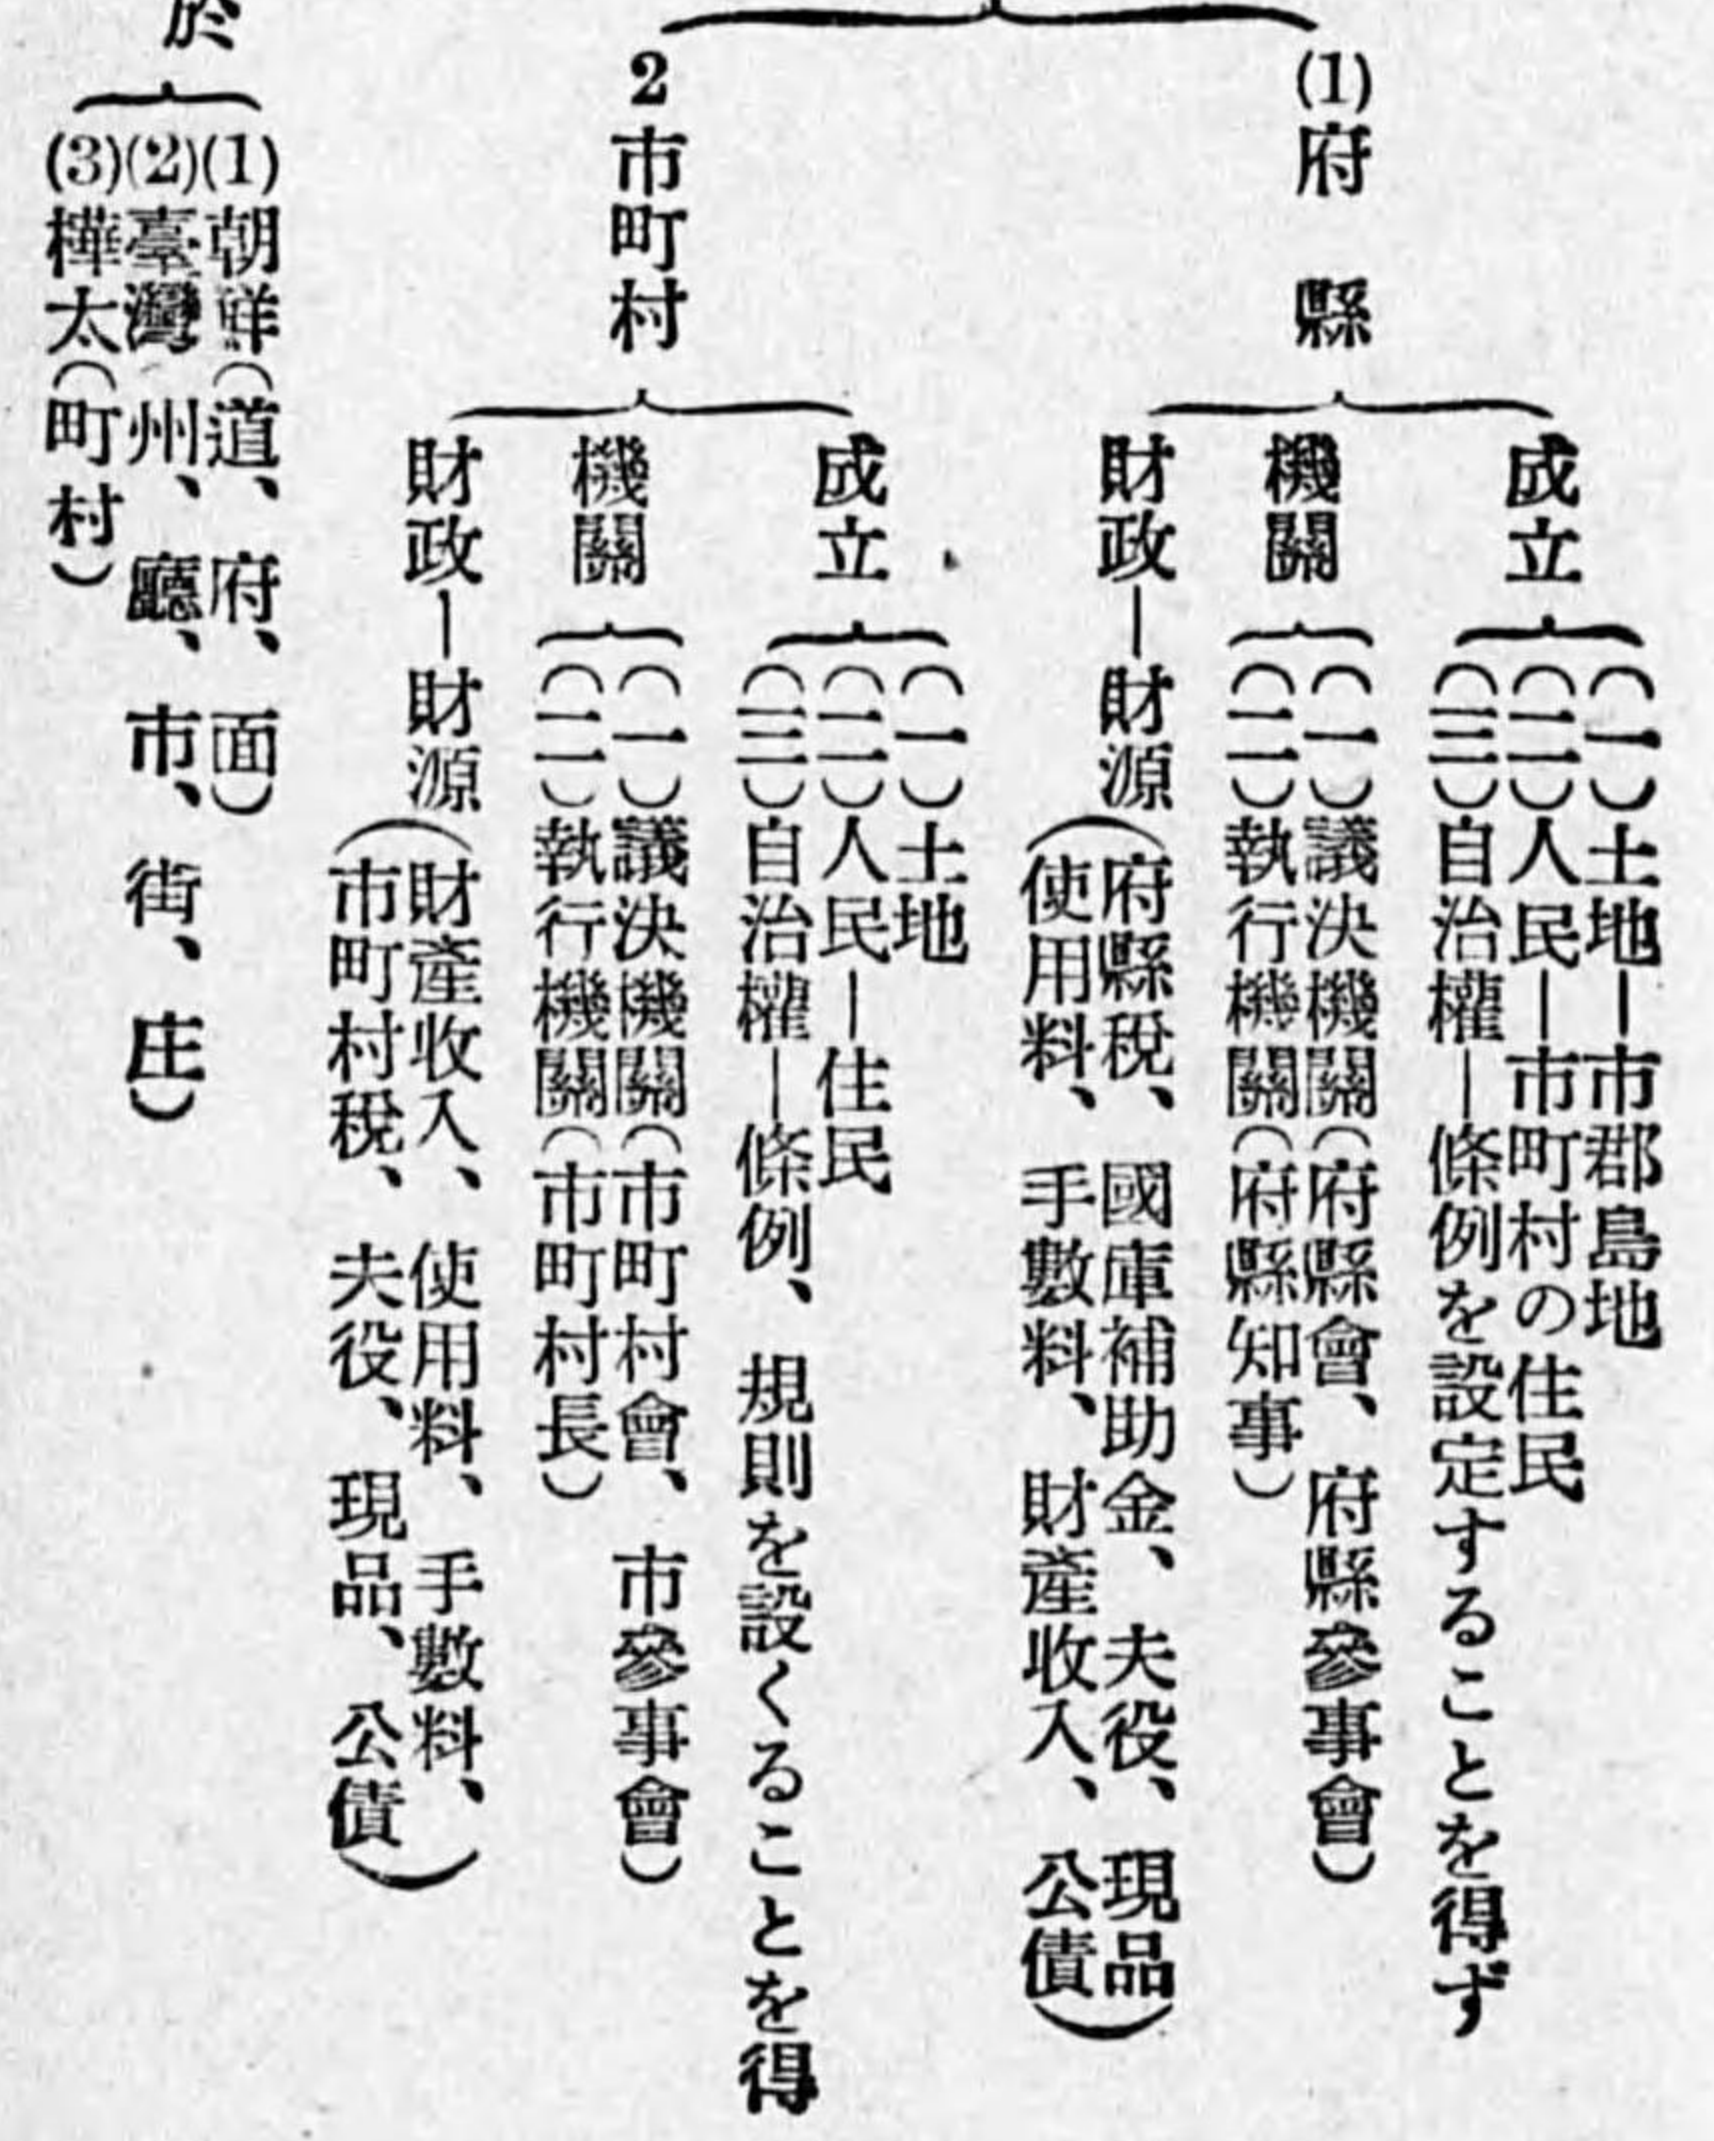 (1)府縣
成立
(一)土地―市郡島地
(二)人民―市町村の住民
(三)自治權―條例を設定することを得ず
機關
(一)議決機關(府縣會、府縣參事會)
(二)執行機關(府縣知事)
財政―財源
(府縣稅、國庫補助金、夫役、現品
使用料、手數料、財產收入、公債)
2市町村
成立
(一)土地
(二)人民―住民
(三)自治權―條例、規則を設くることを得
機關
(一)議決機關(市町村會、市參事會)
(二)執行機關(市町村長)
財政―財源
(財產收入、使用料、手數料、
市町村稅、夫役、現品、公債)
於
(1)朝鮮(道、府、面)
(2)臺灣(州、廳、市、街、庄)
(3)樺太(町村)